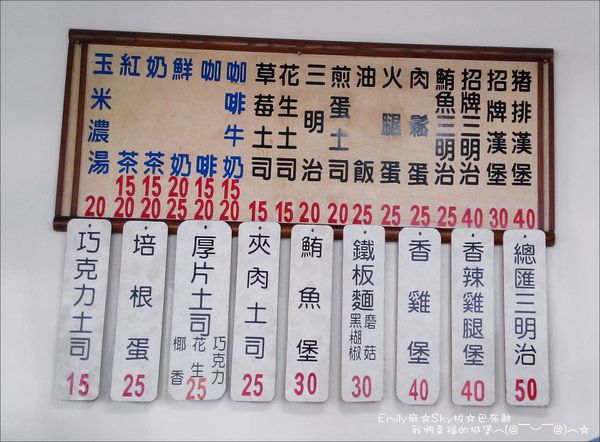 豬排漢堡 40
招牌漢堡 30
招牌三明治 40
鮪魚三明治 25
肉鬆蛋 25
火腿蛋 25
油飯 25
煎蛋土司 20
三明治 20
花生土司 15
草莓土司 15
咖啡牛奶 15 20
咖啡 15 20
鮮奶 20 25
奶茶 15 20
紅茶 15 20
玉米濃湯 20
巧克力土司 15
培根蛋 25
厚片土司 巧克力 花生 椰香 25
夾肉土司 25
鮪魚堡 30
鐵板麵 蘑菇 黑楜椒 30
香雞堡 40
香辣雞腿堡 40
總匯三明治 50
Emily麻☆Sky拔☆巴布融
我們幸福的城堡︿(@￣︶￣@)︿☆